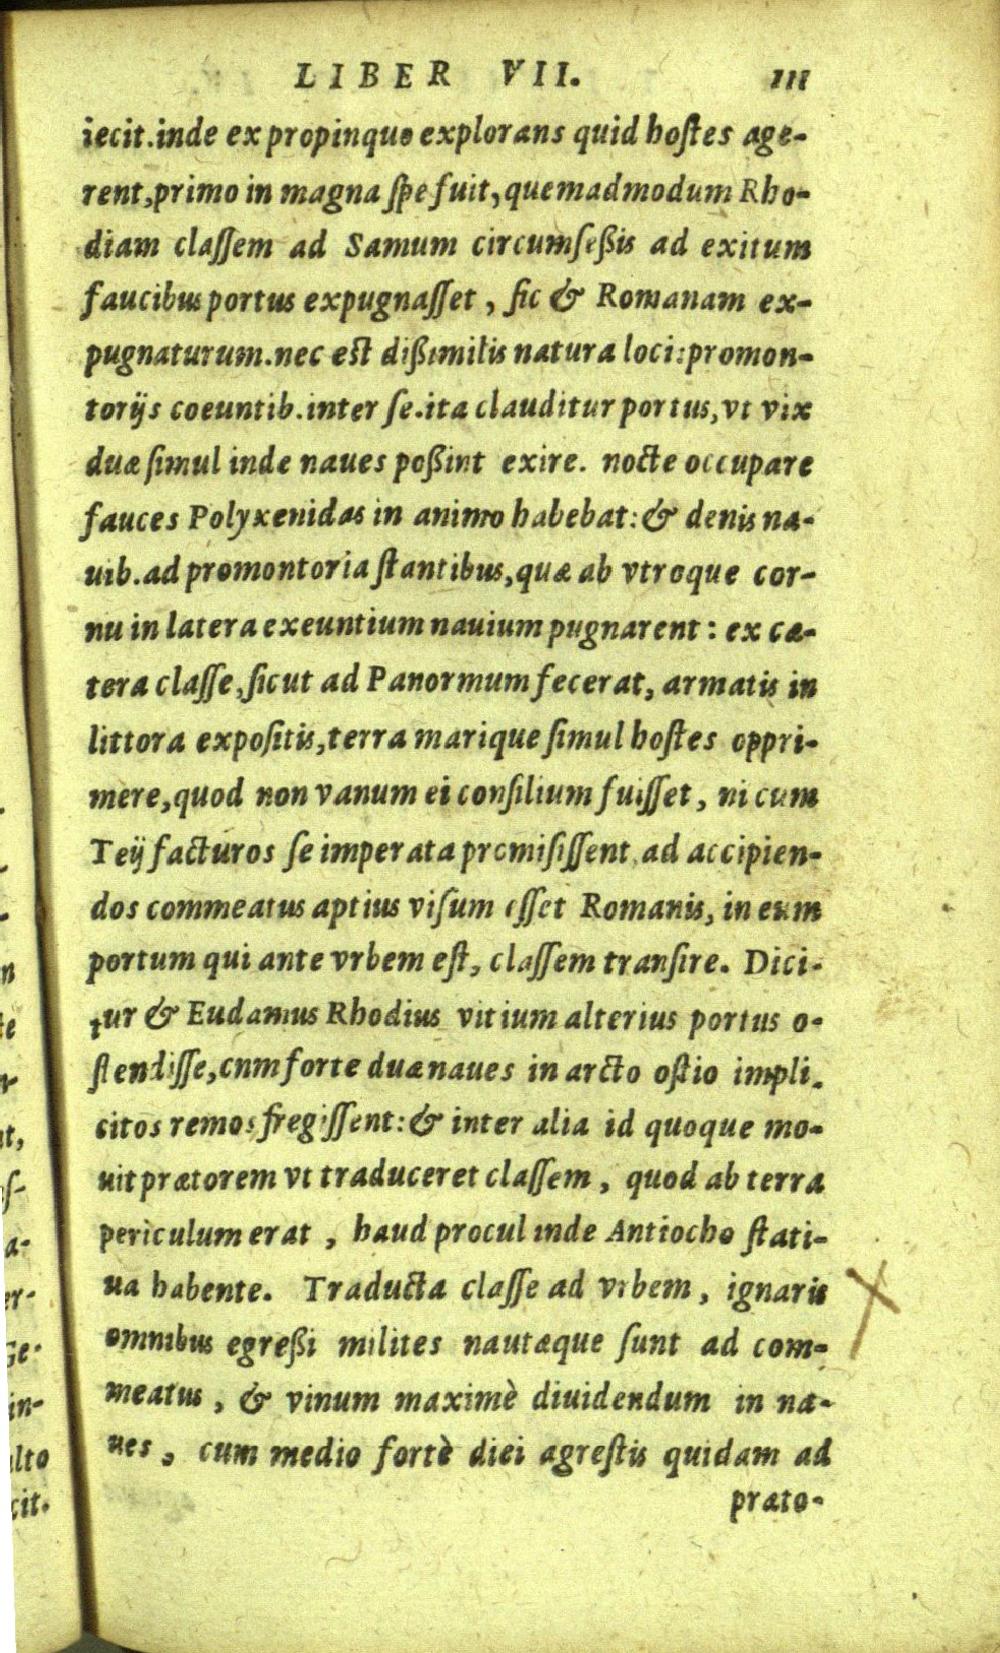 LIBER VII. 111
iecit.inde ex propinquo explorans quid hostes age-
rent,primo in magna spe fuit,quemadmodum Rho-
diam classem ad Samum circumseßis ad exitum
faucibus portus expugnasset, sic & Romanam ex-
pugnaturum.nec est dißimilis natura loci:promon-
torijs coeuntib.inter se.ita clauditur portus,vt vix
duæ simul inde naues poßint exire. nocte occupare
fauces Polyxenidas in animo habebat:& denis na-
uib.ad promontoria stantibus,quæ ab vtroque cor-
nu in latera exeuntium nauium pugnarent: ex cæ-
tera classe,sicut ad Panormum fecerat, armatis in
littora expositis,terra marique simul hostes oppri-
mere,quod non vanum ei consilium fuisset, ni cum
Teij facturos se imperata promisissent ad accipien-
dos commeatus aptius visum esset Romanis, in eum
portum qui ante vrbem est, classem transire. Dici-
tur & Eudamus Rhodius vitium alterius portus o-
stendisse,cnm forte duæ naues in arcto ostio impli-
citos remos fregissent:& inter alia id quoque mo-
uit prætorem vt traduceret classem, quod ab terra
periculum erat, haud procul inde Antiocho stati-
ua habente. Traducta classe ad vrbem, ignaris
omnibus egreßi milites nautæque sunt ad com-
meatus, & vinum maximè diuidendum in na-
ues, cum medio fortè diei agrestis quidam ad
præto-